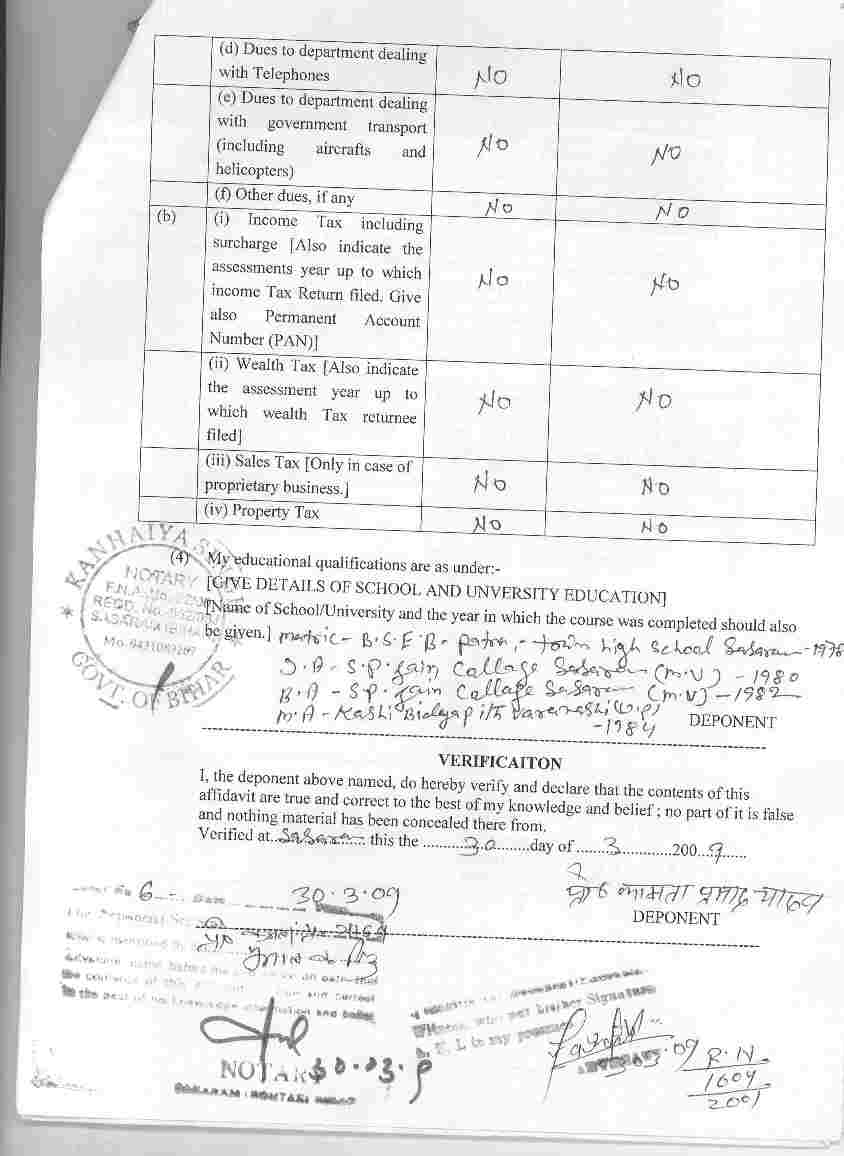 (d) Dues to department dealing
with Telephones NO NO
(e) Dues to department dealing
with government transport
(including aircrafts and
helicopters) NO NO
(f) Other dues, if any NO NO
(b) (i) Income Tax including
surcharge [Also indicate the
assessments year up to which
income Tax Return filed. Give
also Permanent Account
Number (PAN)] NO NO
(ii) Wealth Tax [Also indicate
the assessment year up to
which wealth Tax returnee
filed] NO NO
(iii) Sales Tax [Only in case of
proprietary business.] NO NO
(iv) Property Tax NO NO
KANHAIYA
NOTARY
GOVT. OF BIHAR
(4) My educational qualifications are as under:-
[GIVE DETAILS OF SCHOOL AND UNVERSITY EDUCATION]
[Name of School/University and the year in which the course was completed should also
be given.] matric - B.S.E.B - patna, - town high School Sasaram - 1978
I.A - S.P. Jain Collage Sasaram (M.U) - 1980
B.A - S.P. Jain Collage Sasaram (M.U) - 1982
M.A - Kashi Bidyapith Varanashi (U.P)
- 1984
DEPONENT
VERIFICAITON
I, the deponent above named, do hereby verify and declare that the contents of this
affidavit are true and correct to the best of my knowledge and belief ; no part of it is false
and nothing material has been concealed there from.
Verified at..Sasaram.. this the ...........30........day of .......3............200...9......
प्रो० कामता प्रसाद यादव
DEPONENT
6 30.3.09
NOTAR 30.03.9
SASARAM
ADVOCATE
R.N.
1609
2001